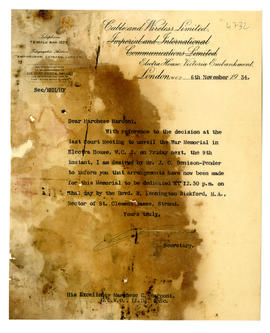 4732
Cable and Wireless Limited.
Imperial and International
Communications Limited
Electra House, Victoria Embankment,
London, W.C.2. 6th November 1934.
Telephone
TEMPLE BAR 1222
Sec/1201/10
Dear Marchese Marconi,
With reference to the decision at the
last Court Meeting to unveil the War Memorial in
Electra House, W.C.2. on Friday next, the 9th
instant, I am desired by Mr. J. C. Denison-Pender
to inform you that arrangements have now been made
for this Memorial to be dedicated AT 12.30 p.m. on
that day by the Revd. R. Pennington Bickford, M.A.,
Rector of St. Clement Danes, Strand.
Yours truly,
Secretary.
His Excellency Marchese G. Marconi,
G.C.V.O., LL.D., D.Sc.